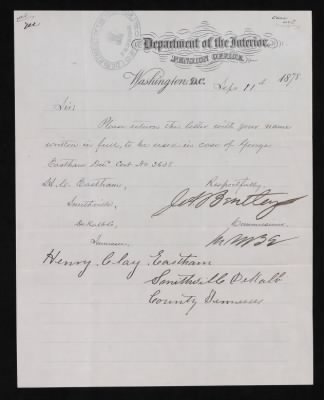 Department of the Interior,
PENSION OFFICE,
Washington, D.C. Sept 11th 1878
Sir:
Please return this letter with your name
written in full, to be used in case of George
Eastham Dec'd Cert No 3608
H. C. Eastham, Respectfully,
Smithville, J. A. Bentley
DeKalb Co, Commissioner.
Tennessee.
Henry. Clay. Eastham
Smithville DeKalb
County Tennessee